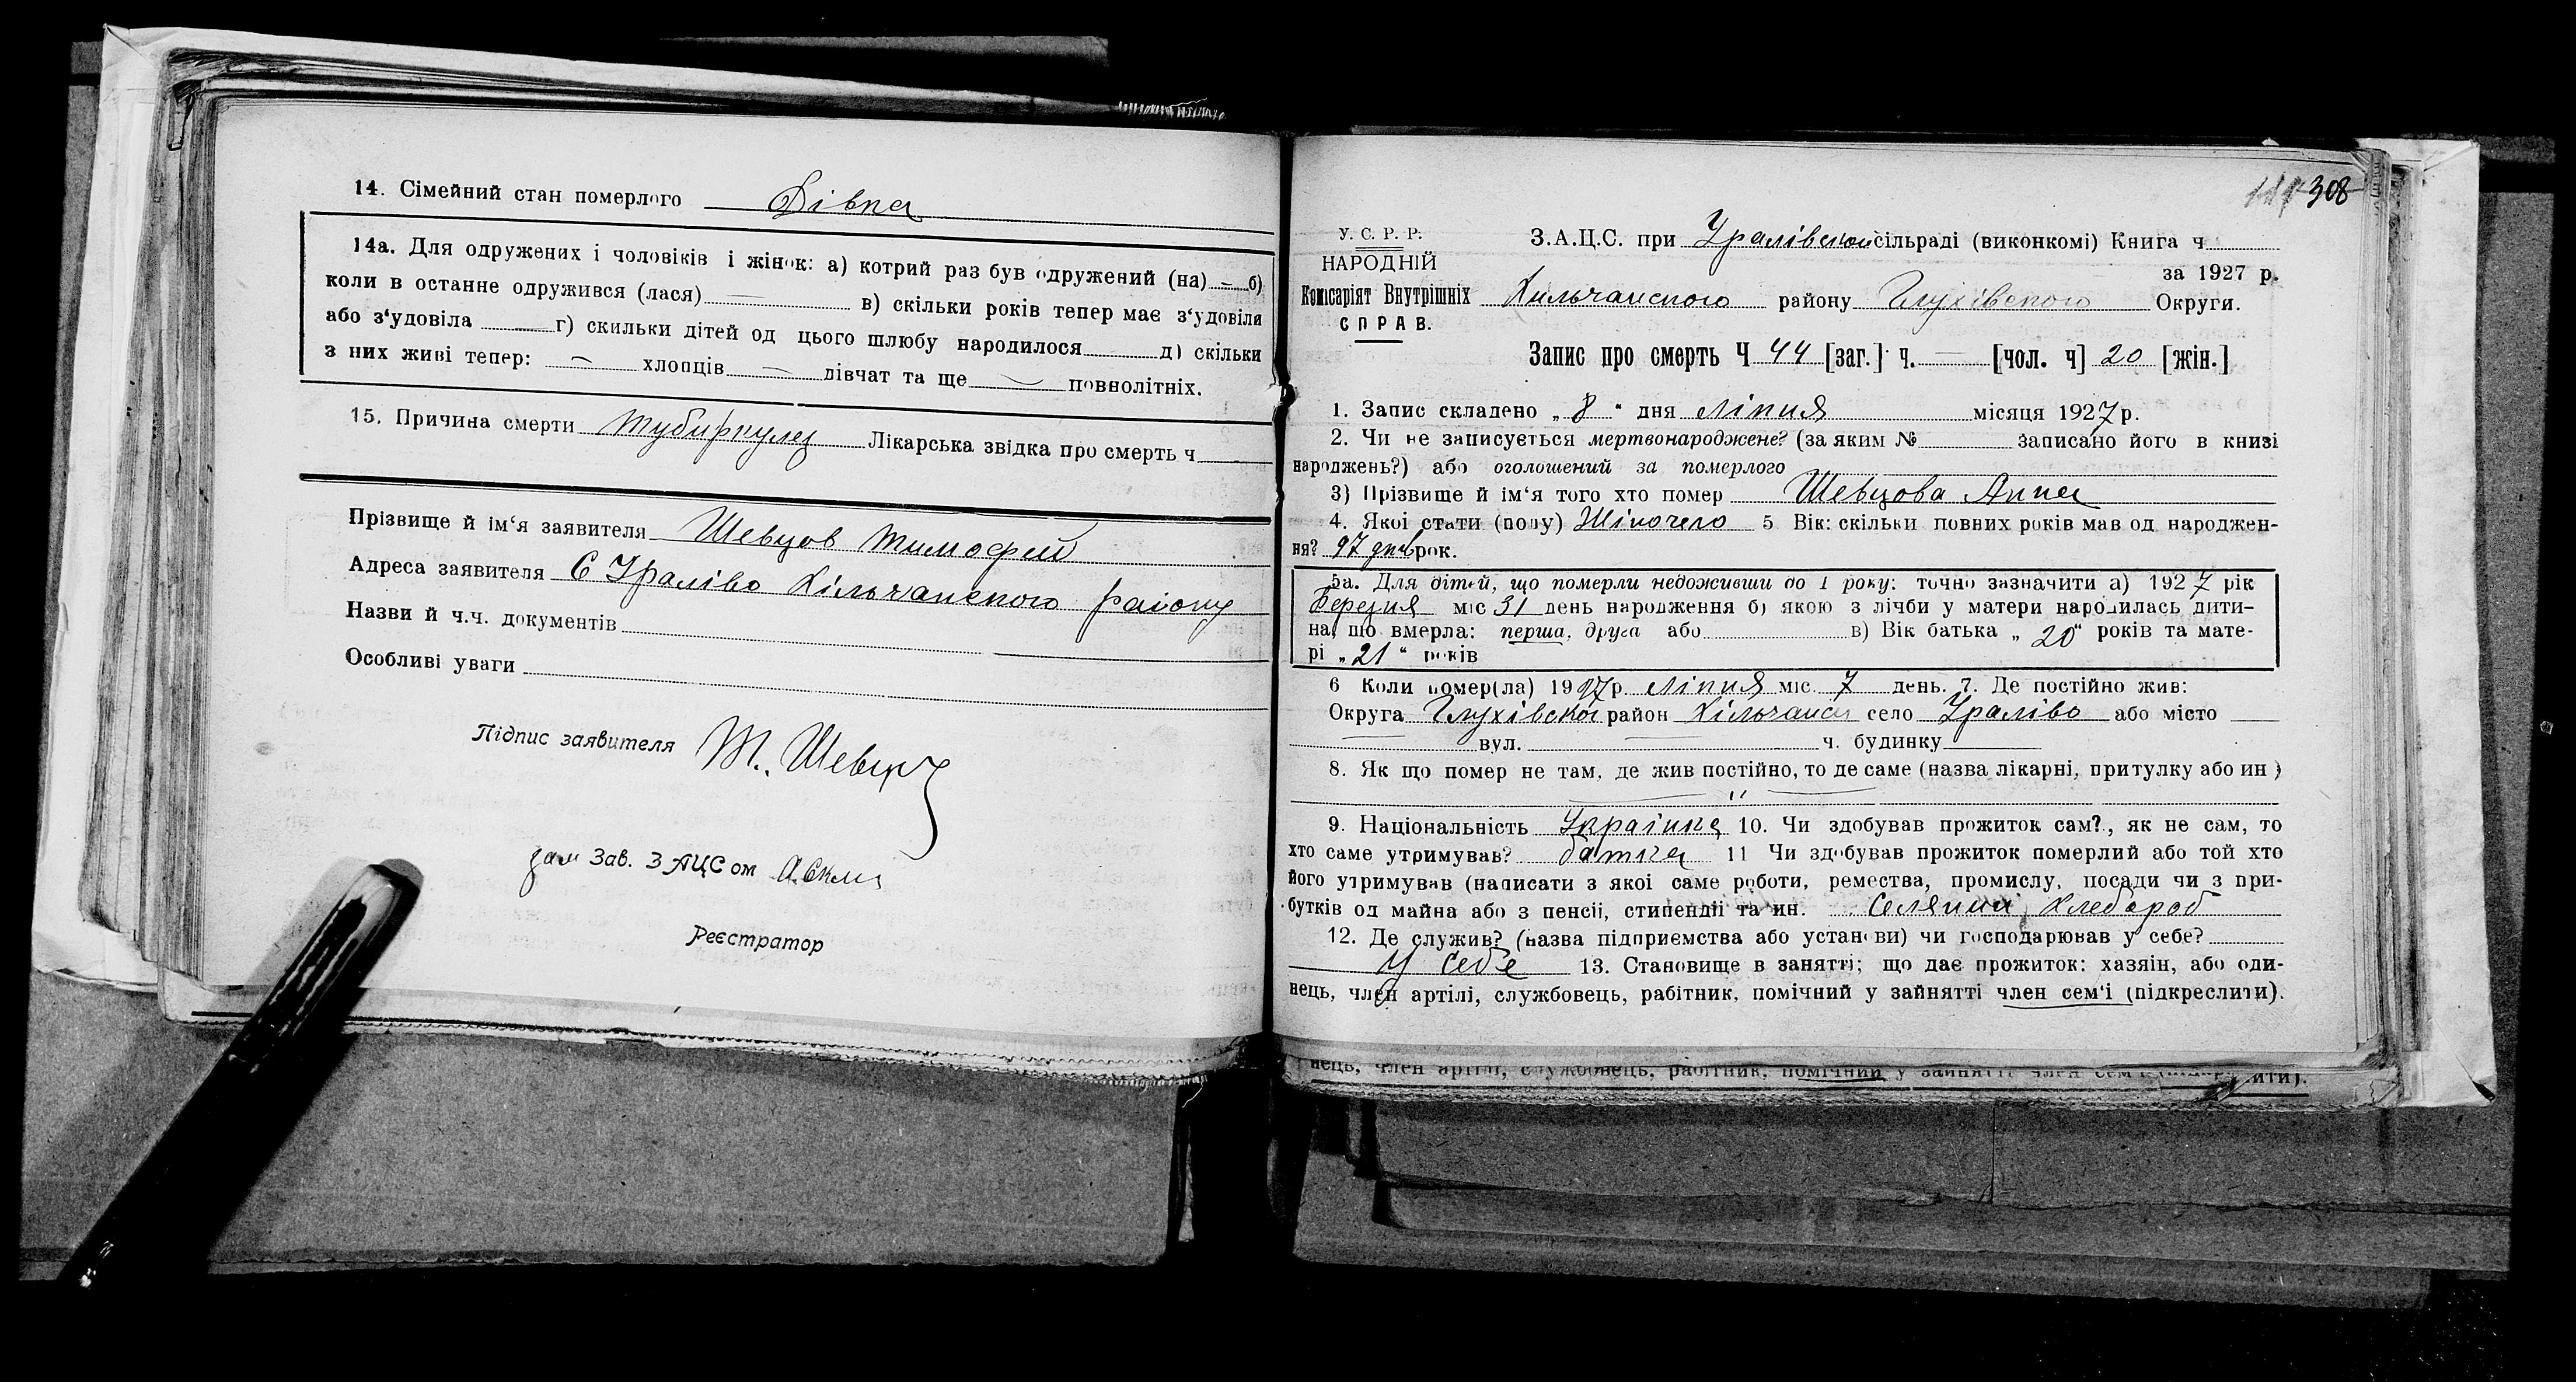 14. Сімейний стан померлого Дівка
14а. Для одружених і чоловіків і жінок: а) котрий раз був одружений (на) — б)
коли в останне одружився (лася) — в) скільки років тепер має з‘удовіли
або з‘удовіла г) скильки дітей од цього шлюбу народилося д) скільки
з них живі тепер: — хлопців — дівчат та ще — повнолітніх.
15. Причина смерти тубиркулез Лікарська звідка про смерть ч
Прізвище й ім‘я заявителя Шевцов Тимофей
Адреса заявителя С Ураліво Хільчанского району
Назви й ч.ч. документів
Особливі уваги
Підпис заявителя Т. Шевцов
зам Зав. ЗАЦСом
Реєстратор
308
У. С. Р. Р.
НАРОДНІЙ
Комісаріят Внутрішніх
СПРАВ.
З.А.Ц.С. при Уралівской сільраді (виконкомі) Книга ч
за 1927 р.
Хильчанского району Глухівского Округи.
Запис про смерть Ч 44 [заг.] ч. — [чол. ч] 20 [жін.]
1. Запис складено „ 8 “ дня Ліпня місяця 1927 р.
2. Чи не записується мертвонароджене? (за яким № записано його в книзі
народжень?) або оголошений за померлого
3) Прізвище й ім‘я того хто помер Шевцова Анна
4. Якоі стати (полу) Жіночего 5 Вік: скільки повних років мав од народжен-
ня? 97 днів рок.
5а. Для дітей, що померли недоживши до 1 року: точно зазначити а) 1927 рік
Березня міс 31 день народження б) якою з лічби у матери народилась дити-
на, що вмерла: перша, друга або в) Вік батька „ 20 “ років та мате-
рі „ 21 “ років
6 Коли помер(ла) 1927 р. Ліпня міс. 7 день. 7. Де постійно жив:
Округа Глухівской район Хільчанск село Ураліво або місто —
— вул. — ч. будинку
8. Як що помер не там, де жив постійно, то де саме (назва лікарні, притулку або ин )
— " —
9. Національність Украінка 10. Чи здобував прожиток сам?, як не сам, то
хто саме утримував? батька 11 Чи здобував прожиток померлий або той хто
його утримував (написати з якоі саме роботи, ремества, промислу, посади чи з при-
бутків од майна або з пенсіі, стипендіі та ин. Селянин, Хлебороб
12. Де служив? (назва підприємства або установи) чи господарював у себе?
У себе 13. Становище в занятті; що дає прожиток: хазяін, або оди-
нець, член артілі, службовець, рабітник, помічний у зайнятті член сем‘і (підкреслити).
нець, член артілі, службовець, рабітник, помічний у зайнятті член сем‘і